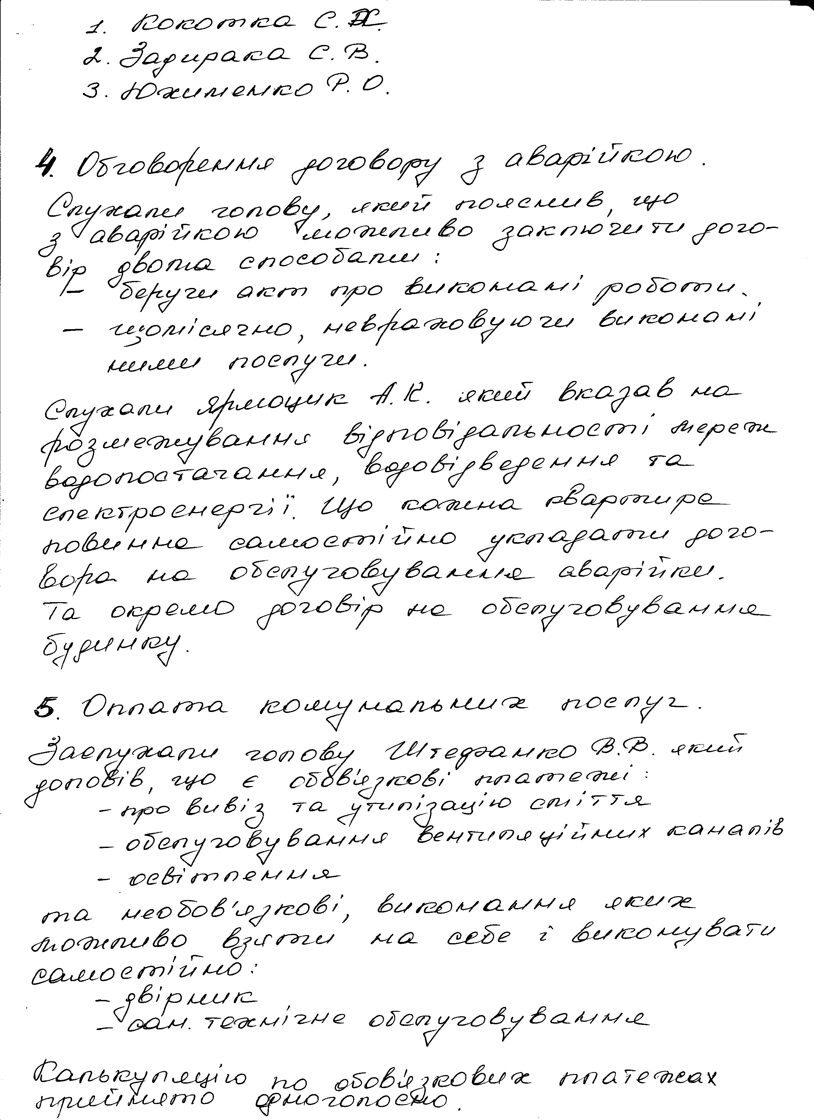 1. Кокотка С.
2. Задирака С. В.
3. Юхименко Р. О.
4. Обговорення договору з аварійкою.
Слухали голову, який пояснив, що
з аварійкою можливо заключити дого-
вір двома способами:
- беручи акт про виконані роботи.
- щомісячно, невраховуючи виконані
ними послуги.
Слухали Ярмощик А. К. який вказав на
розмежування відповідальності мереж
водопостачання, водовідведення та
електроенергії. Що кожна квартира
повинна самостійно укладати дого-
вора на обслуговування аварійки.
Та окремо договір на обслуговування
будинку.
5. Оплата комунальних послуг.
Заслухали голову Штефанко В. В. який
доповів, що є обов'язкові платежі:
- про вивіз та утилізацію сміття
- обслуговування вентиляційних каналів
- освітлення
та необов'язкові, виконання яких
можливо взяти на себе і виконувати
самостійно:
- двірник
- сан. технічне обслуговування
Калькуляцію по обов'язкових платежах
прийнято одноголосно.